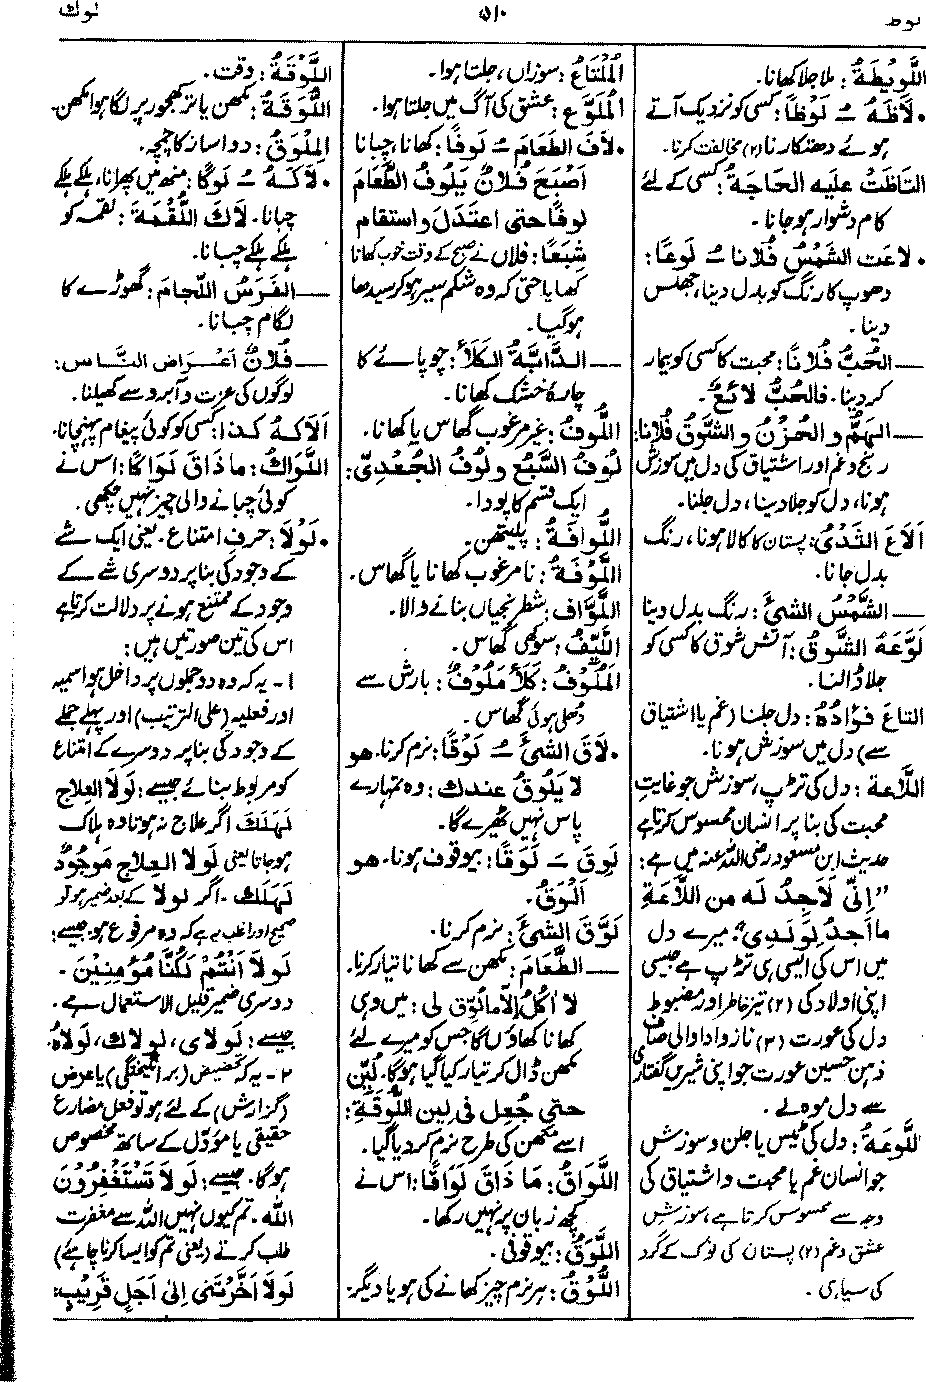 لوط
۵۱۰
لوک
اللَّوِيْطَةُ: ملا جلا کھانا.
• لَاطَهُ ـُ لَوْظًا: کسی کو نزدیک آتے
ہوئے دھتکارنا (۲) مخالفت کرنا.
التَاظَتْ علیه الحَاجَةُ: کسی کے لئے
کام دشوار ہو جانا.
• لَاعَت الشَّمْسُ فُلَانا ـُ لَوعًا:
دھوپ کا رنگ کو بدل دینا، جھلس
دینا.
— الحُبُّ فُلَانًا: محبت کا کسی کو بیمار
کر دینا. فالحُبُّ لَائعٌ.
— الهَمُّ و الحُزْنُ و الشَّوْقُ فُلانا:
رنج و غم اور اشتیاق کی دل میں سوزش
ہونا، دل کو جلا دینا، دل جلنا.
اَلَاعَ الثَدْیُ: پستان کا کالا ہونا، رنگ
بدل جانا.
— الشَّمْسُ الشیَٔ: رنگ بدل دینا
لَوَّعَهُ الشَّوْقُ: آتش شوق کا کسی کو
جلا ڈالنا.
التاعَ فُؤَادُهُ: دل جلنا (غم یا اشتیاق
سے) دل میں سوزش ہونا.
اللَّاعَة: دل کی تڑپ، سوزش جو غایتِ
محبت کی بنا پر انسان محسوس کرتا ہے
حدیث ابن مسعود رضی اللہ عنہ میں ہے:
"اِنِّی لَاَجِدُ لَه من اللَّاعَةِ
ما اَجدُ لِوَلَدِی": میرے دل
میں اس کی ایسی ہی تڑپ ہے جیسی
اپنی اولاد کی (۲) تیز خاطر اور مضبوط
دل کی عورت (۳) ناز و ادا والی صاف
ذہن حسین عورت جو اپنی شیریں گفتاری
سے دل موہ لے.
اللَّوعَةُ: دل کی ٹیس یا جلن و سوزش
جو انسان غم یا محبت و اشتیاق کی
وجہ سے محسوس کرتا ہے، سوزش
عشق و غم (۲) پستان کی نوک کے گرد
کی سیاہی.
المُلْتاعُ: سوزاں، جلتا ہوا.
المُلَوَّع: عشق کی آگ میں جلتا ہوا.
• لَافَ الطَعَامَ ـُ لَوفًا: کھانا، چبانا
اَصْبَحَ فُلانٌ یَلُوفُ الطَّعَامَ
لوفًا حتی اعتَدَلَ و استقام
شِبَعًا: فلاں نے صبح کے وقت خوب کھانا
کھایا حتی کہ وہ شکم سیر ہو کر سیدھا
ہو گیا.
— الدَابَّةُ الکَلَأَ: چوپائے کا
چارۂ خشک کھانا.
اللُّوفُ: غیر مرغوب گھاس یا کھانا.
لُوفُ السَّبُعِ و لُوفُ الجُعْدِیّ:
ایک قسم کا پودا.
اللُّوَافَةُ: پلیتھن.
اللُّوْفَةُ: نامرغوب کھانا یا گھاس.
اللَّوَّاف: شطرنجیاں بنانے والا.
اللَّیِّفُ: سوکھی گھاس.
المَلُوْفُ: کَلَأٌ مَلُوْفٌ: بارش سے
دھلی ہوئی گھاس.
• لَاقَ الشیَٔ ـُ لَوْقًا: نرم کرنا. هو
لا یَلُوقُ عندک: وہ تمہارے
پاس نہیں ٹھیرے گا.
لَوِقَ ـَ لَوَقًا: بیوقوف ہونا. هو
اَلْوَقُ.
لَوَّقَ الشیَٔ: نرم کرنا.
— الطَّعَامَ: مکھن سے کھانا تیار کرنا.
لا آکُلُ اِلَّا مالُوِّقَ لِی: میں وہی
کھانا کھاؤں گا جس کو میرے لئے
مکھن ڈال کر تیار کیا گیا ہوگا. لُیِّن
حتی جُعِل فی لین اللُّوقَة:
اسے مکھن کی طرح نرم کر دیا گیا.
اللَّوَاقُ: مَا ذَاقَ لَوَاقًا: اس نے
کچھ زبان پر نہیں رکھا.
اللَّوَقُ: بیوقوفی.
اللُّوْقُ: ہر نرم چیز کھانے کی ہو یا دیگر.
اللَّوْقَةُ: دقت.
اللُّوْقَةُ: مکھن یا تر کھجور پر لگا ہوا مکھن.
المِلْوَقُ: دواساز کا چمچہ.
• لَاکَهُ ـُ لَوکًا: منھ میں پھرانا، ہلکے ہلکے
چبانا. لَاکَ اللُّقْمَةَ: لقمہ کو
ہلکے ہلکے چبانا.
— الفَرَسُ اللّجامَ: گھوڑے کا
لگام چبانا.
— فُلَانٌ اَعْرَاضَ النَّاس:
لوگوں کی عزت و آبرو سے کھیلنا.
اَلَاکَهُ کذا: کسی کو کوئی پیغام پہنچانا.
اللَّوَاکُ: ما ذَاقَ لَوَاکًا: اس نے
کوئی چبانے والی چیز نہیں چکھی.
• لَوْلَا: حرفِ امتناع. یعنی ایک شے
کے وجود کی بنا پر دوسری شے کے
وجود کے ممتنع ہونے پر دلالت کرتا ہے
اس کی تین صورتیں ہیں:
۱- یہ کہ وہ دو جملوں پر داخل ہو اسمیہ
اور فعلیہ (علی الترتیب) اور پہلے جملے
کے وجود کی بنا پر دوسرے کے امتناع
کو مربوط بنائے جیسے: لَولَا العِلاج
لَهَلَکَ اگر علاج نہ ہوتا وہ ہلاک
ہو جاتا یعنی لَولَا العِلاج مَوجُودٌ
لَهَلَکَ. اگر لولا کے بعد ضمیر ہو تو
صحیح اور اغلب یہ ہے کہ وہ مرفوع ہو. جیسے:
لَولَا اَنْتُمْ لَکُنَّا مُؤْمِنِیْنَ.
دوسری ضمیر قلیل الاستعمال ہے.
جیسے: لَولَای، لولَاکَ، لَولَاهُ.
۲- یہ کہ تحضیض (برانگیختگی) یا عرض
(گزارش) کے لئے ہو تو فعل مضارع
حقیقی یا مؤوّل کے ساتھ مخصوص
ہوگا. جیسے: لَولَا تَسْتَغْفِرُوْنَ
الله. تم کیوں نہیں اللہ سے مغفرت
طلب کرتے (یعنی تم کو ایسا کرنا چاہئے)
لَولَا اَخَّرْتَنِی اِلیٰ اَجَلٍ قَرِیْبٍ: